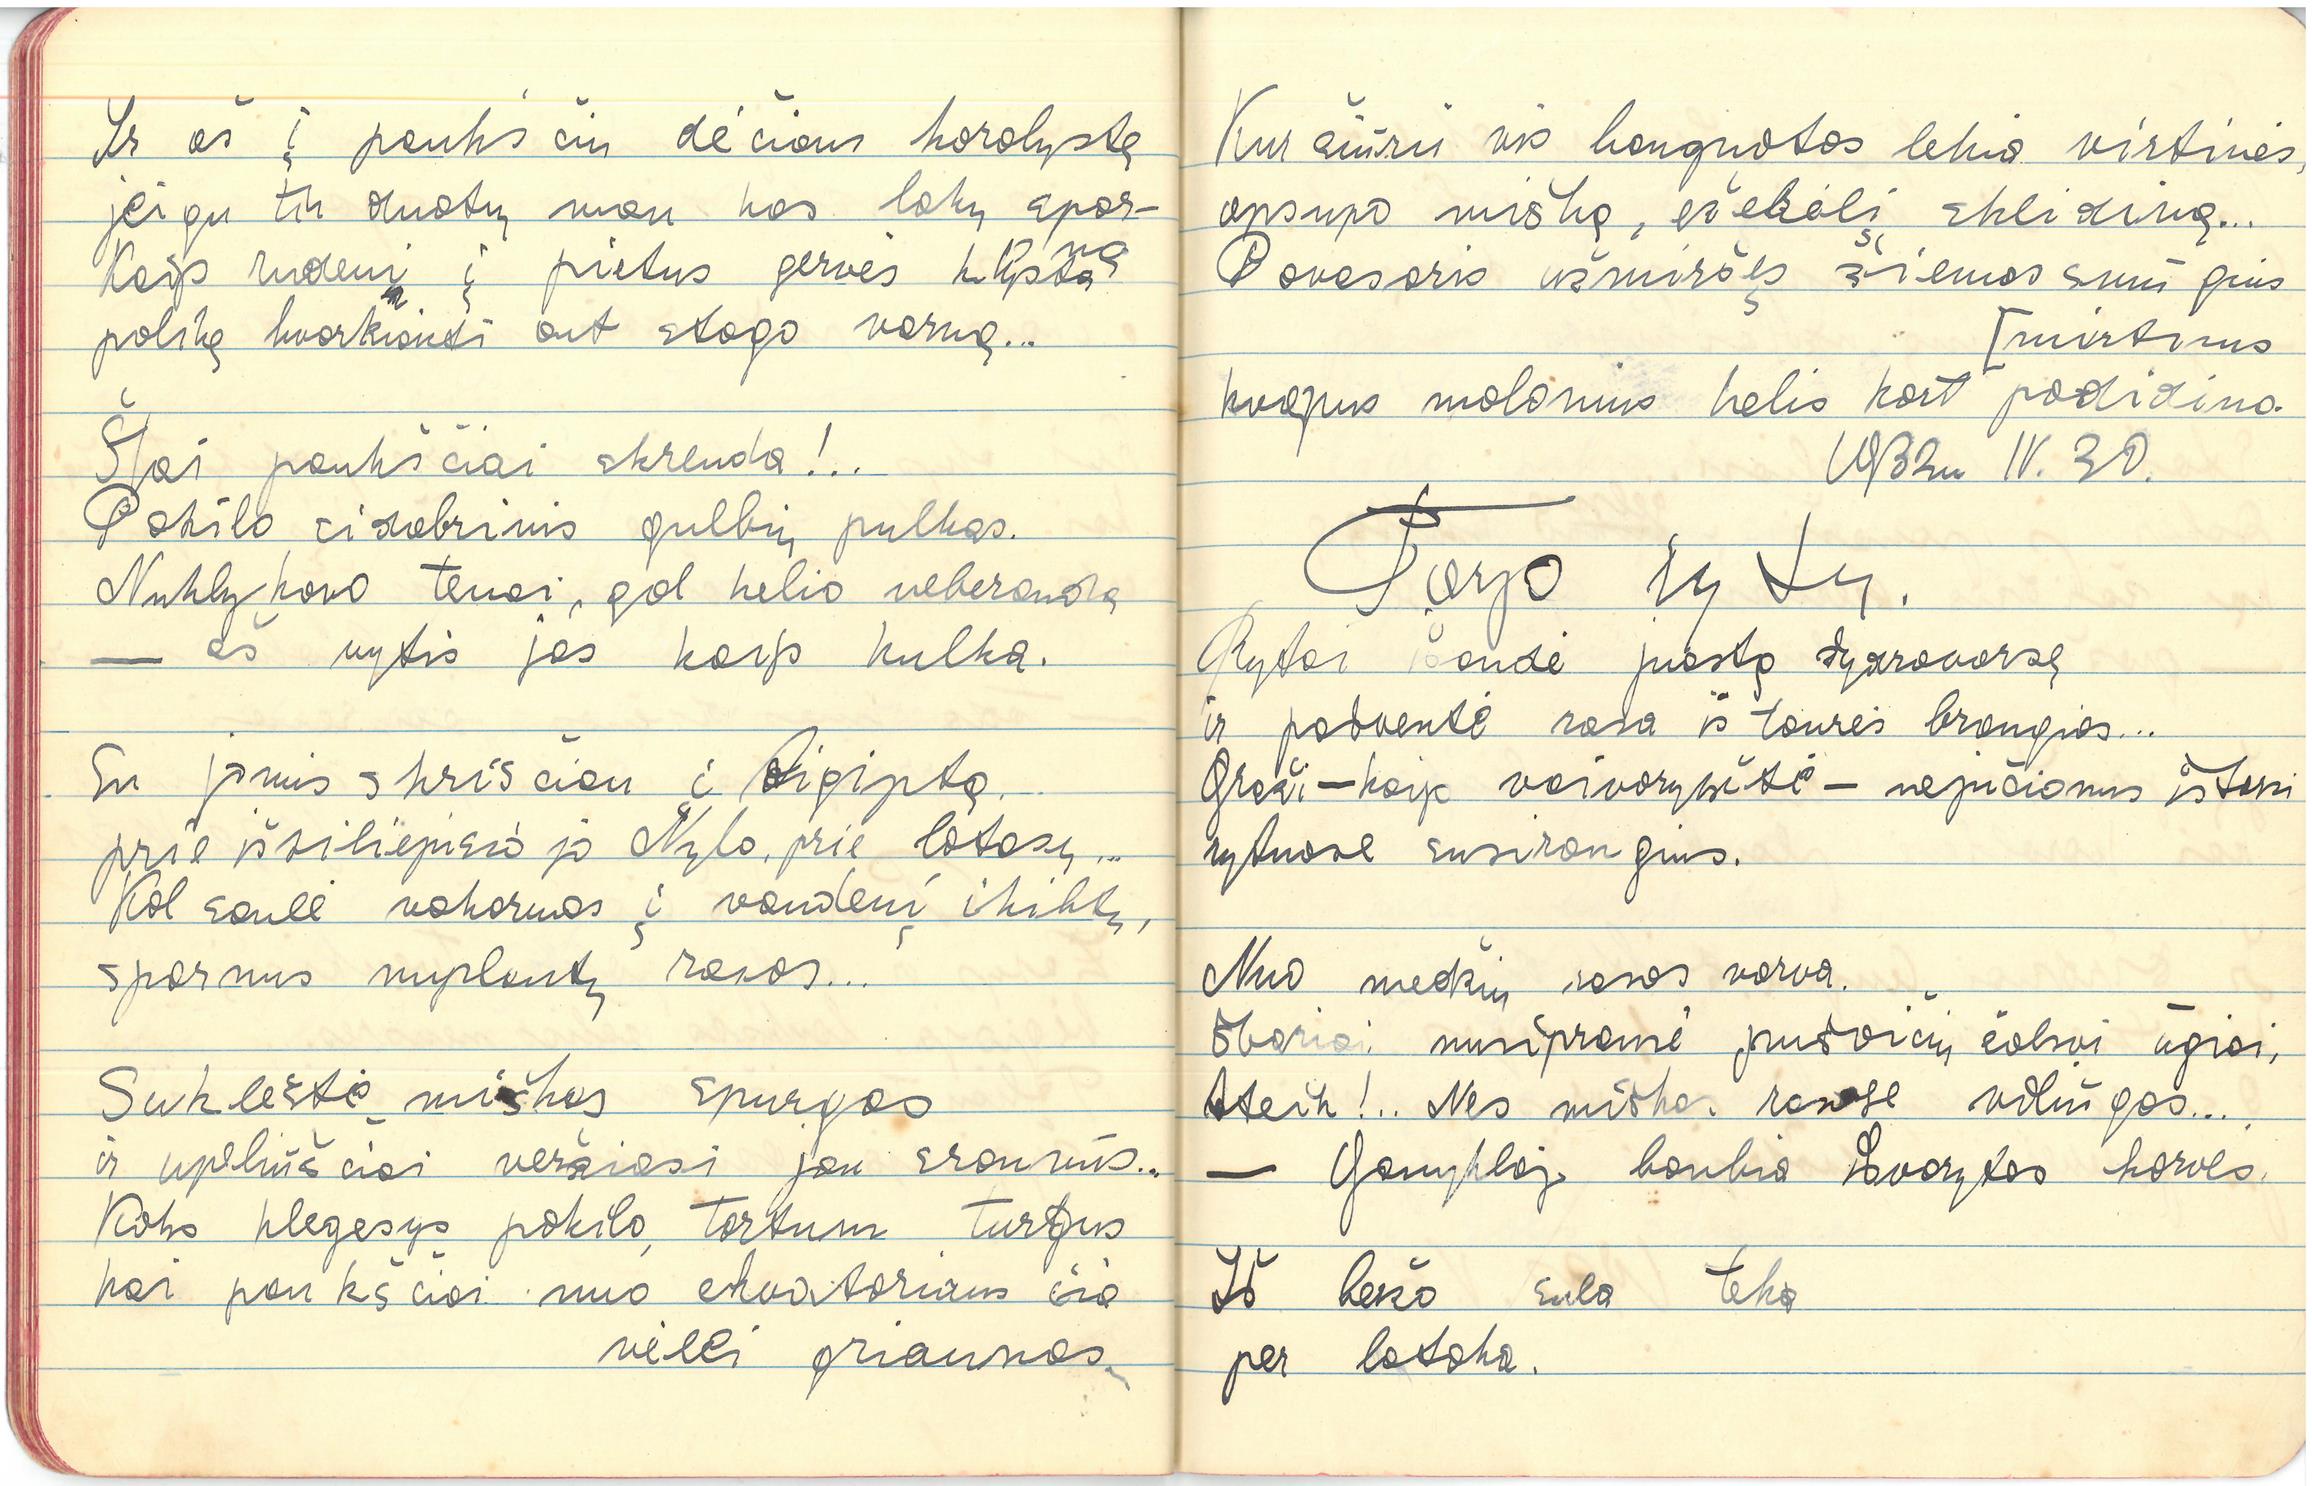 Ir aš į paukščių dėčiaus karalystę
jeigu tik duotų man kas lakų spar-
ną
Kaip rudenį į pietus gervės klysta
palikę kvarkianti ant stogo varną...
Štai paukščiai skrenda!..
Pakilo sidabrinis gulbių pulkas.
Nuklykavo tenai, gal kelio neberanda
— aš vytis jas kaip kulka.
Su jomis skrisčiau į Aigiptą
prie išsiliejusio jo Nylo, prie lotosų...
Kol saulė vakaruos į vandenį įkiktų,
sparnus nuplautų rasos...
Suklestė miškas spurgos
ir upeliuščiai veržiasi jau sraunūs..
Koks klegesys pakilo, tartum turgus
kai paukščiai nuo ekvatoriaus čia
vėlei griaunas.
Kur žiūrii vis banguotas lekia virtinės,
apsupo mišką, ežerėlį sklidiną...
Pavasaris užmiršęs žiemos smūgius
[mirtinus
kvapus malonius kelis kart padidina.
1932m IV. 30.
Tarp rytų.
Rytai išaudė juostą dyzrovarsę
ir pašventė rasa iš taurės brangios...
Graži—kaip vaivorykštė— nejučiomis ištarsi
rytuose susirangius.
Nuo medžių rasos varva.
Švariai nusiprausė pušaičių žalsvi ūgiai,
Ateik!.. Nes miškas rasose vilūgas...
— Ganyklaj baubia išvarytos karvės.
Iš beržo sula teka
per lataka.